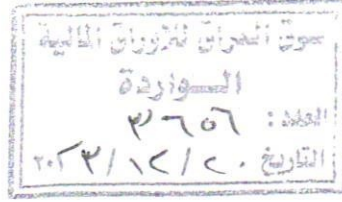 سوق العراق للأوراق المالية
الواردة
العدد: ٣٦٥٦
التاريخ ٢٠٢٣/١٢/٢٠